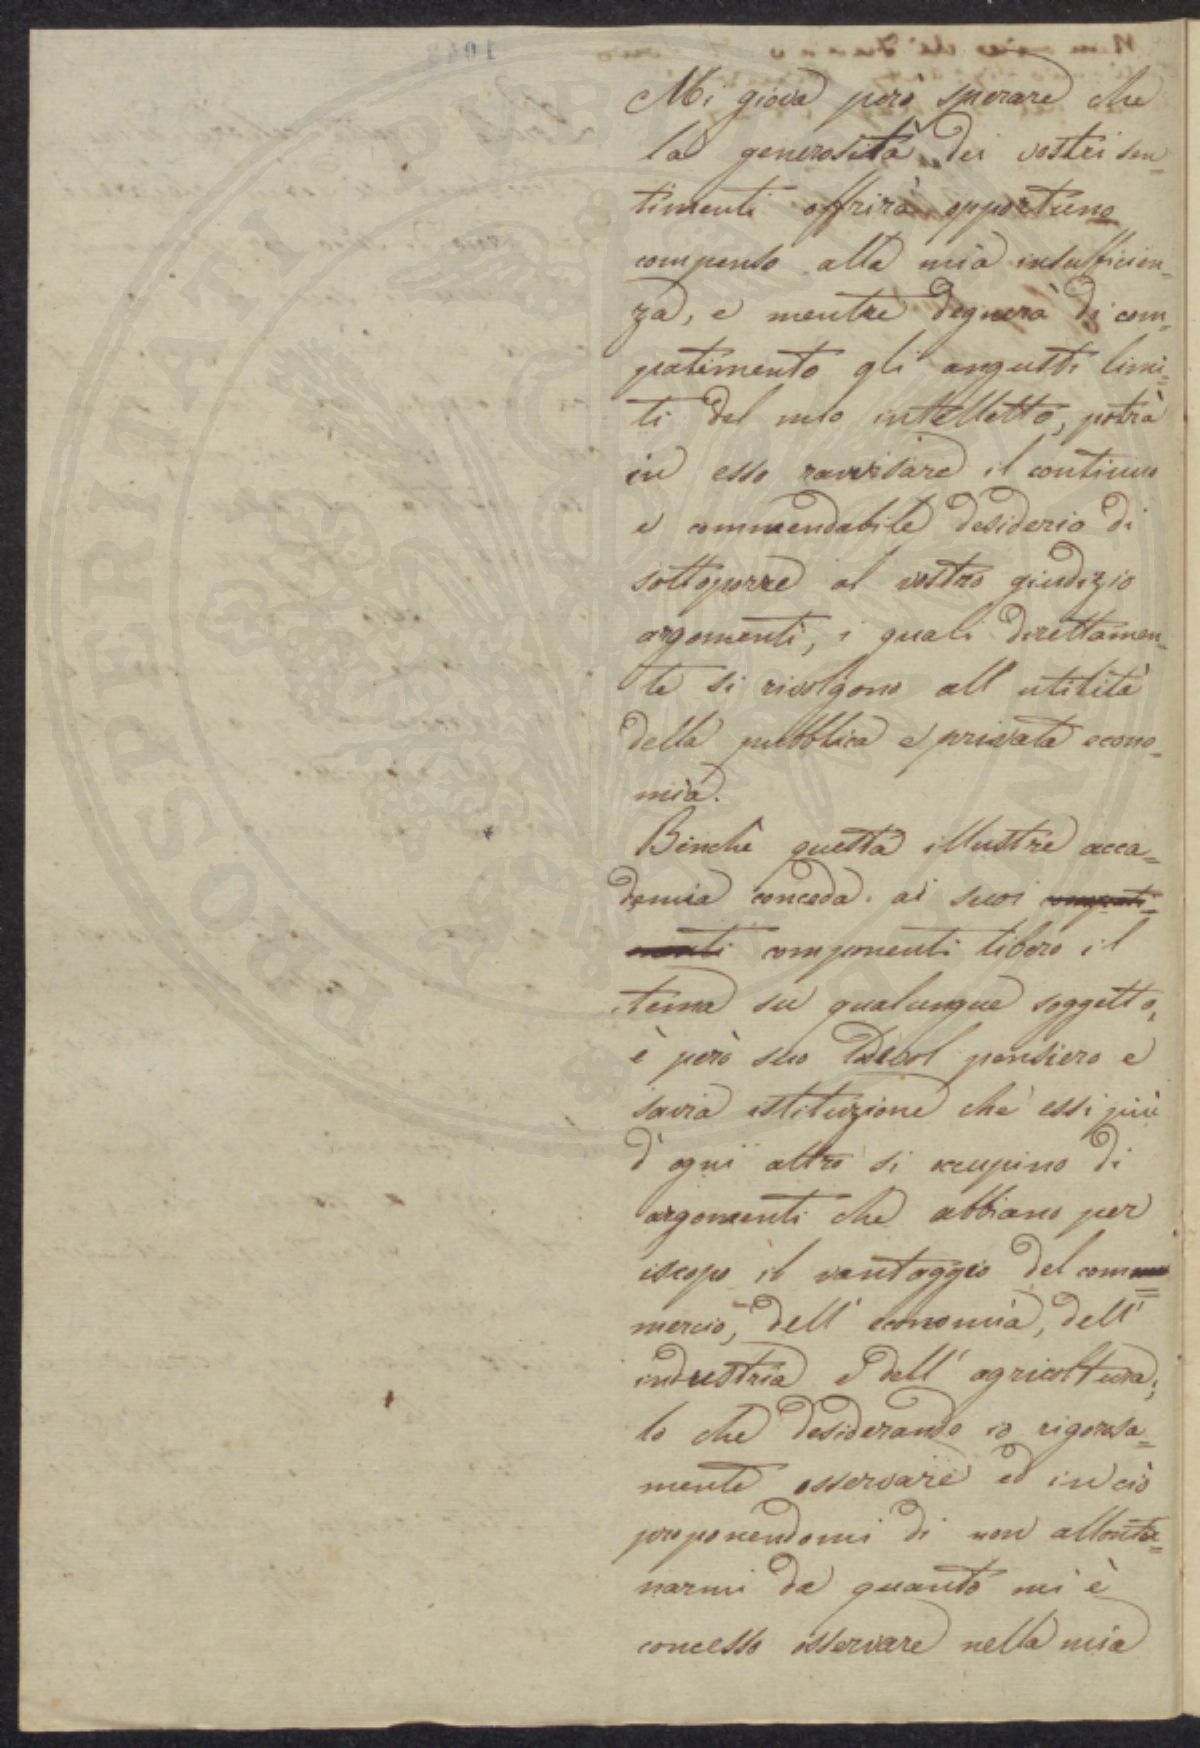 Mi giova però sperare che
la generosità dei vostri sen-
timenti offrirà opportuno
compenso alla mia insufficien-
za, e mentre degnerà di com-
patimento gli angusti limi-
ti del mio intelletto, potrà
in esso ravvisare il continuo
e commendabile desiderio di
sottoporre al vostro giudizio
argomenti, i quali direttamen-
te si rivolgono all'utilità
della pubblica e privata econo-
mia.
Benchè questa illustre acca=
demia conceda ai suoi
componenti libero il
tema su qualunque soggetto,
è però suo pensiero e
savia istituzione che essi più
d'ogni altro si occupino di
argomenti che abbiano per
iscopo il vantaggio del com=
mercio, dell'economia, dell'
industria e dell'agricoltura;
lo che desiderando io rigorosa=
mente osservare ed in ciò
proponendomi di non allonta=
narmi da quanto mi è
concesso osservare nella mia
PROSPERITATI